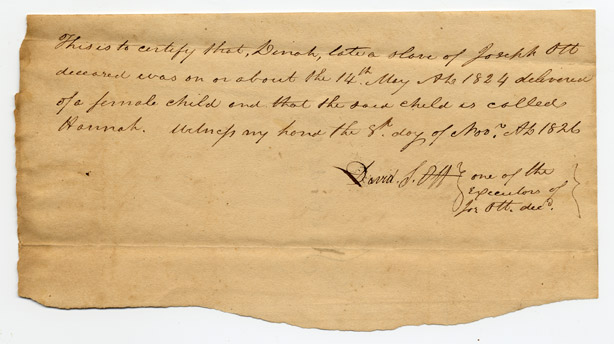 This is to certify that, Dinah, late a slave of Joseph Ott
deceased was on or about the 14th. May AD 1824 delivered
of a female child and that the said child is called
Hannah. Witness my hand the 8th. day of Novr. AD 1826
David. S. Ott { one of the
Executors of
Jos Ott. decd.